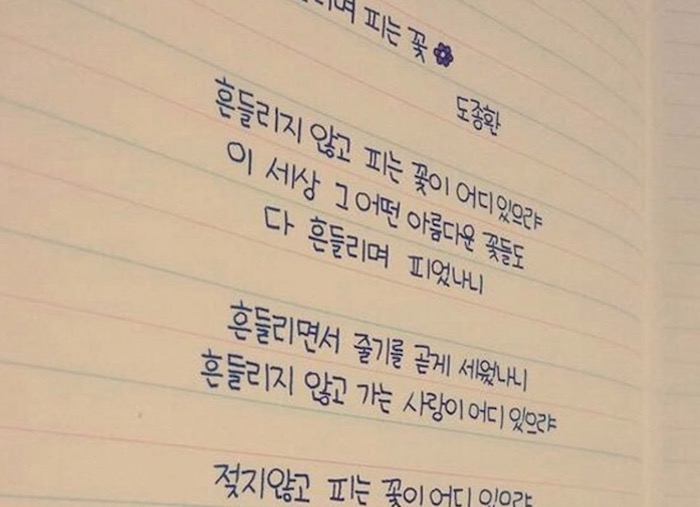 며 피는 꽃
도종환
흔들리지 않고 피는 꽃이 어디 있으랴
이 세상 그 어떤 아름다운 꽃들도
다 흔들리며 피었나니
흔들리면서 줄기를 곧게 세웠나니
흔들리지 않고 가는 사랑이 어디 있으랴
젖지않고 피는 꽃이 어디 있으랴